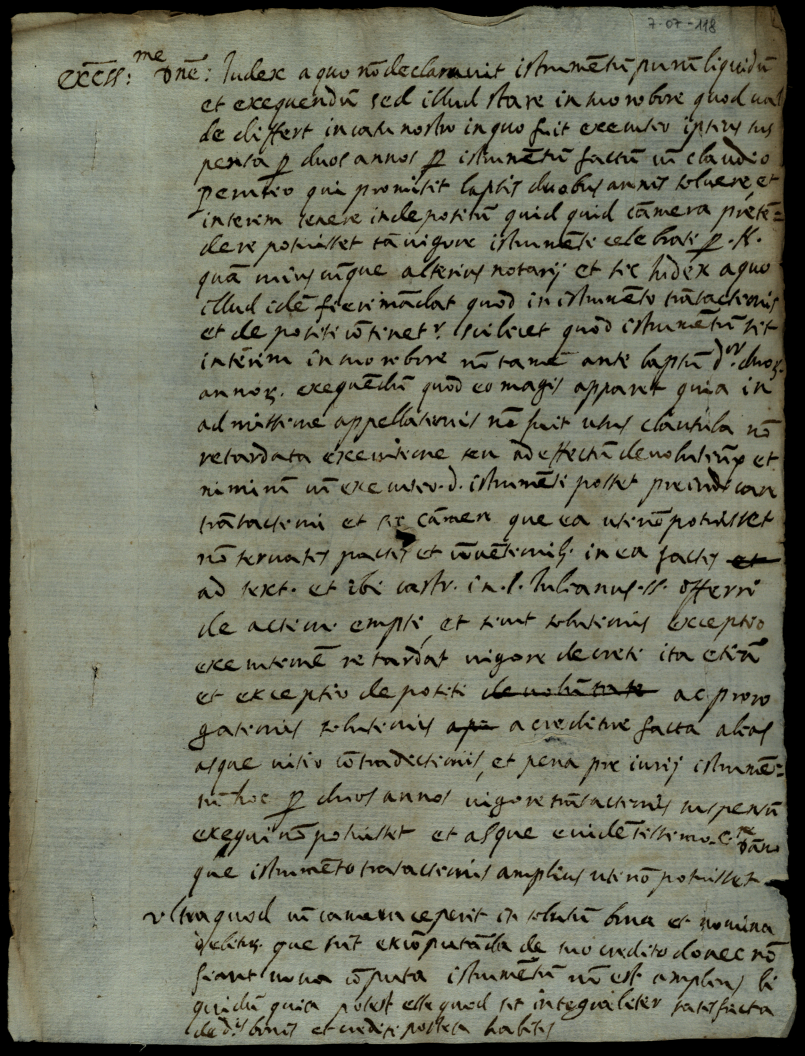 7-07-118
excss:me Dne: Iudex a quo nō declaravit istrumētū purū liquidū
et exequendū sed illud stare in suo robore quod val
de differt in casu nostro in quo fuit executio ipsius sus
pensa p duos annos p istrumētū factū cū claudio
perutio qui promisit lapsis duobus annis solvere, et
interim tenere in depositū quid quid cāmera pretē=
dere potuisset tā vigore istrumēti celebrati p. N.
quā cuius cūque alterius notarij et sic Iudex a quo
illud idē fieri mādat quod in istrumēto trāsactionis
et depositi cōtinetr. scilicet quod istrumētū sit
intērim in suo robore nō tamē ante lapsū dor. duoȝ.
annoȝ. exequēdū quod eo magis apparet quia in
admissione appellationis nō fuit usus clausula nō
retardata executione seu ad effectū devolutivū et
nimirū cū executio. d. istrumēti posset preiudicare
trāsactioni et sic cāmere que ea uti nō potuisset
nō servatis pactis et cōvētionib. in ea factis et
ad text. et ibi castr. in. l. Iulianus. ff. offerri
de action. empti, et sicut solutionis exceptio
executionē retardat vigore decreti ita etiā
et exceptio depositi ac proro
gationis solutionis a creditore facta alias
asque vitio cōtradictionis, et pena pre iurij istrumē=
tū hoc p duos annos vigore trāsactionis suspensū
exequi nō potuisset et asque evidētissimo. C.me dāno
que istrumēto trāsactionis amplius uti nō potuisset
Ultra quod cū camera ceperit in solutū bona et nomina
debitoȝ. que sūt excōputāda de suo credito donec nō
fiant nova cōputa istrumētū nō est amplius li
quidū quia potest esse quod sit integraliter satisfacta
de dis bonis et crediti postea habitis